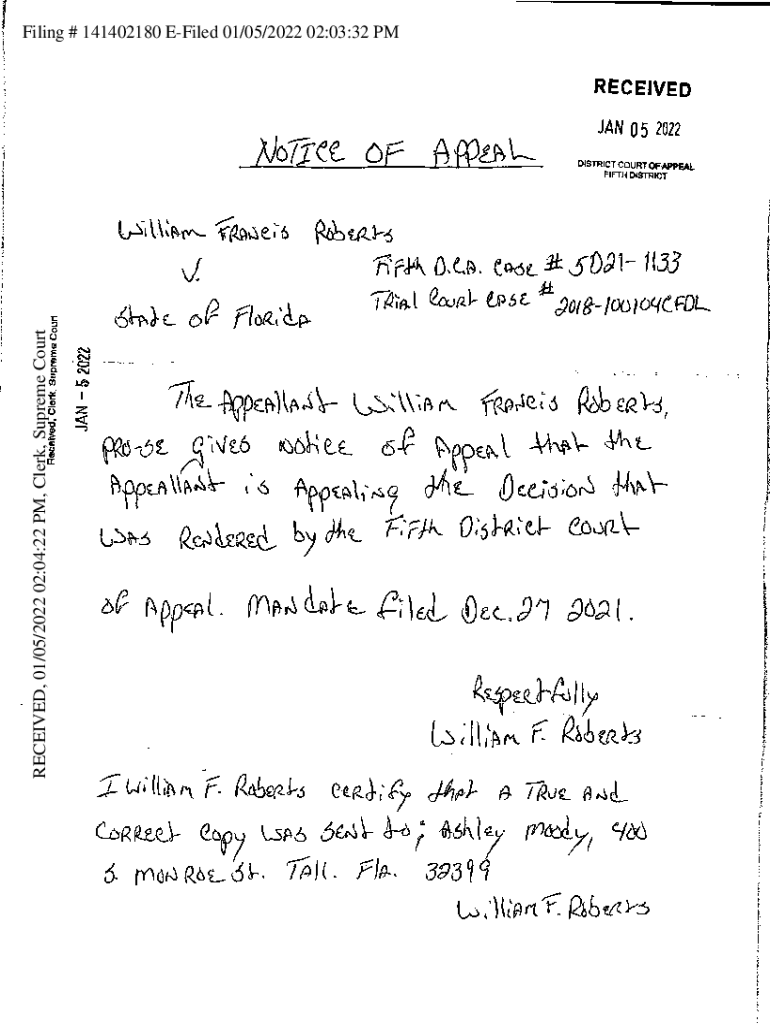 Filing # 141402180 E-Filed 01/05/2022 02:03:32 PM
RECEIVED
JAN 05 2022
DISTRICT COURT OF APPEAL
FIFTH DISTRICT
NOTICE OF APPEAL
William Francis Roberts
Fifth D.C.A. Case # 5D21-1133
V.
Trial Court Case # 2018-100104CFDL
State of Florida
RECEIVED, 01/05/2022 02:04:22 PM, Clerk, Supreme Court
Received, Clerk, Supreme Court
JAN - 5 2022
The Appeallant William Francis Roberts,
pro-se gives notice of Appeal that the
Appeallant is Appealing the Decision that
was Rendered by the Fifth District Court
of Appeal. Mandate filed Dec. 27 2021.
Respectfully
William F. Roberts
I William F. Roberts certify that A True And
Correct Copy was sent to; Ashley Moody, 400
S. Monroe St. Tall. Fla. 32399
William F. Roberts